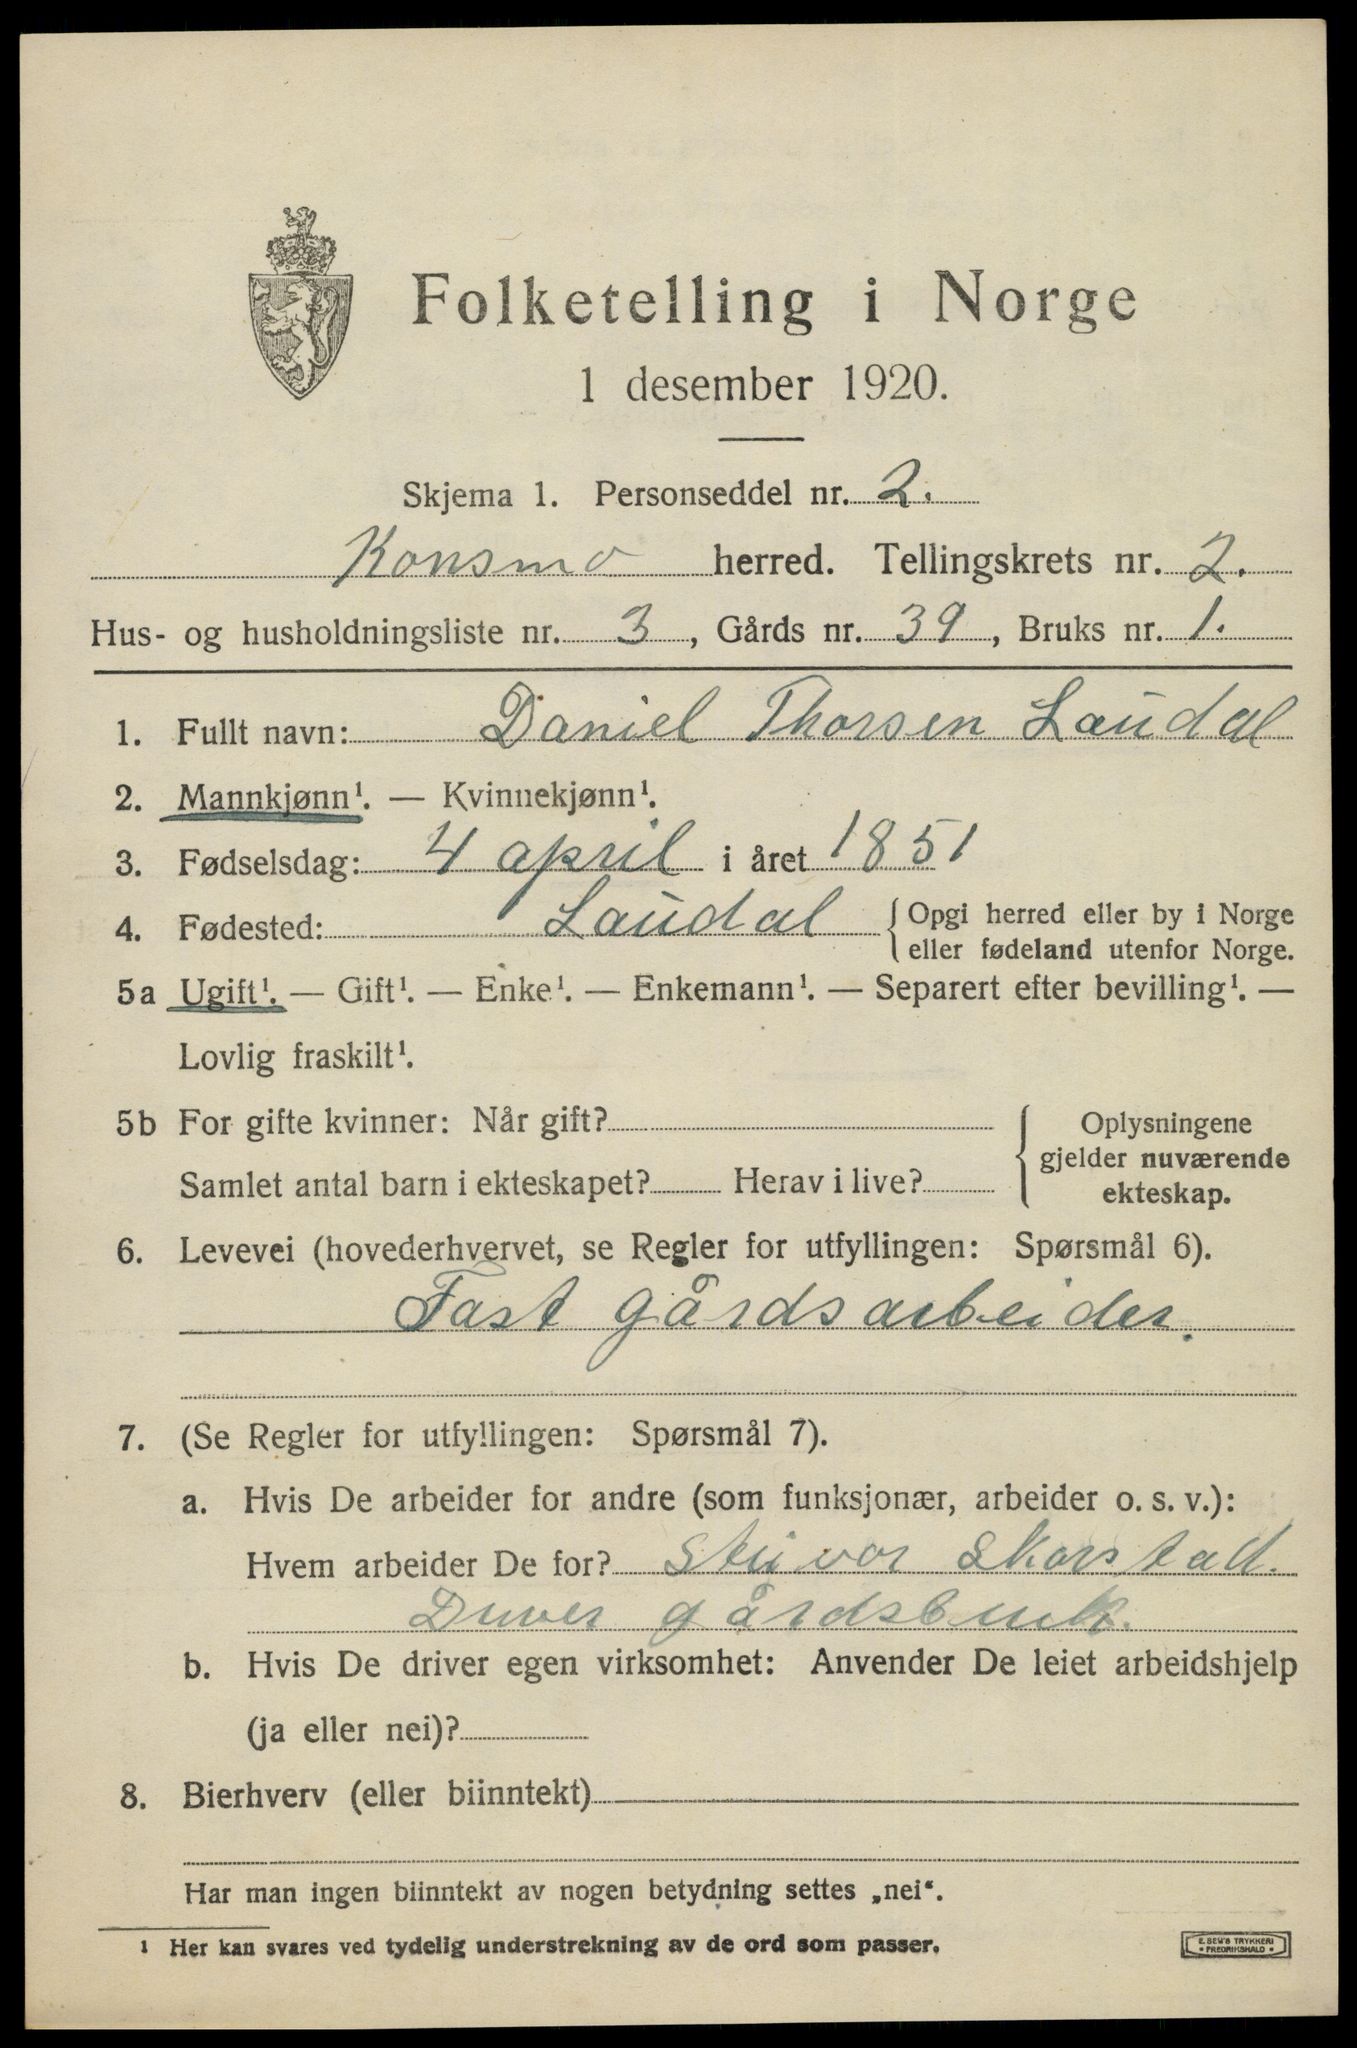 Folketelling i Norge
1 desember 1920.
Skjema 1. Personseddel nr. 2.
Konsmo herred. Tellingskrets nr. 2.
Hus- og husholdningsliste nr. 3, Gårds nr. 39, Bruks nr. 1.
1. Fullt navn: Daniel Thorsen Laudal
2. Mannkjønn¹. — Kvinnekjønn¹.
3. Fødselsdag: 4 april i året 1851
4. Fødested: Laudal
Opgi herred eller by i Norge
eller fødeland utenfor Norge.
5a Ugift¹. — Gift¹. — Enke¹. — Enkemann¹. — Separert efter bevilling¹. —
Lovlig fraskilt¹.
5b For gifte kvinner: Når gift?
Samlet antal barn i ekteskapet? Herav i live?
Oplysningene
gjelder nuværende
ekteskap.
6. Levevei (hovederhvervet, se Regler for utfyllingen: Spørsmål 6).
Fast gårdsarbeider.
7. (Se Regler for utfyllingen: Spørsmål 7).
a. Hvis De arbeider for andre (som funksjonær, arbeider o. s. v.):
Hvem arbeider De for? Skorstad.
Driver gårdsbruk.
b. Hvis De driver egen virksomhet: Anvender De leiet arbeidshjelp
(ja eller nei)?
8. Bierhverv (eller biinntekt)
Har man ingen biinntekt av nogen betydning settes „nei“.
¹ Her kan svares ved tydelig understrekning av de ord som passer.
E. SEM'S TRYKKERI
• FREDRIKSHALD •